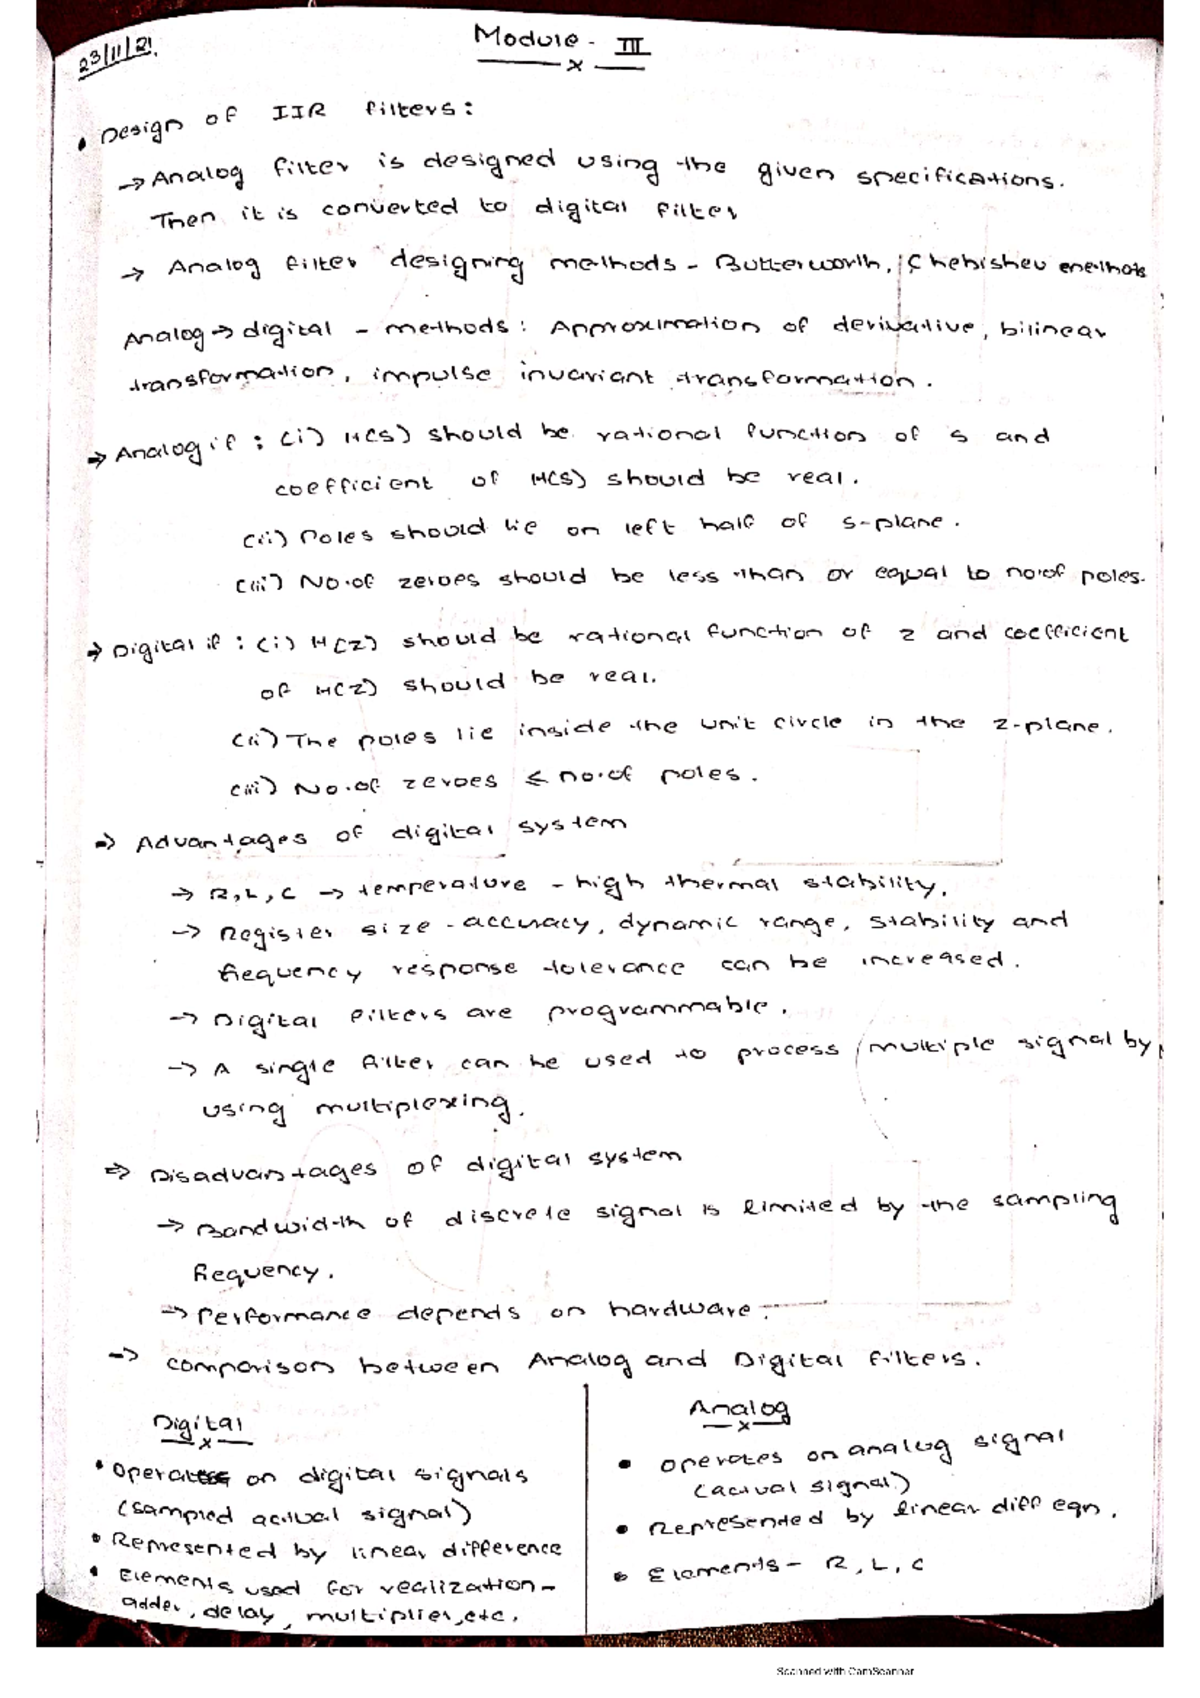 23/11/21
Module - III
• Design of IIR filters:
→ Analog filter is designed using the given specifications.
Then it is converted to digital filter
→ Analog filter designing methods - Butterworth, Chebishev methods
Analog → digital - methods: Approximation of derivative, bilinear
transformation, impulse invariant transformation.
→ Analog if : (i) H(s) should be rational function of s and
coefficient of H(s) should be real.
(ii) Poles should lie on left half of s-plane.
(iii) No.of zeroes should be less than or equal to no.of poles.
→ Digital if : (i) H(z) should be rational function of z and coefficient
of H(z) should be real.
(ii) The poles lie inside the unit circle in the z-plane.
(iii) No.of zeroes ≤ no.of poles.
→ Advantages of digital system
→ R, L, C → temperature - high thermal stability.
→ Register size - accuracy, dynamic range, stability and
frequency response tolerance can be increased.
→ Digital filters are programmable.
→ A single filter can be used to process multiple signal by
using multiplexing.
⇒ Disadvantages of digital system
→ Bandwidth of discrete signal is limited by the sampling
frequency.
→ Performance depends on hardware.
→ comparison between Analog and Digital filters.
Digital
• Operates on digital signals
(sampled actual signal)
• Represented by linear difference
• Elements used for realization -
adder, delay, multiplier, etc.
Analog
• operates on analog signal
(actual signal)
• Represented by linear diff eqn.
• Elements - R, L, C
Scanned with CamScanner